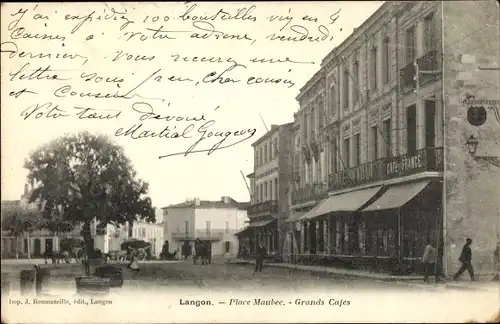 J'ai expédié 100 bouteilles vin en 4
Caisses à Votre adresse, vendredi
dernier, vous recevrez une
lettre sous peu, cher cousin
et Cousine
Votre tout dévoué
Martial Gougeon
CAFE DE FRANCE
Langon. — Place Maubec. - Grands Cafes
Imp. J. édit., Langon